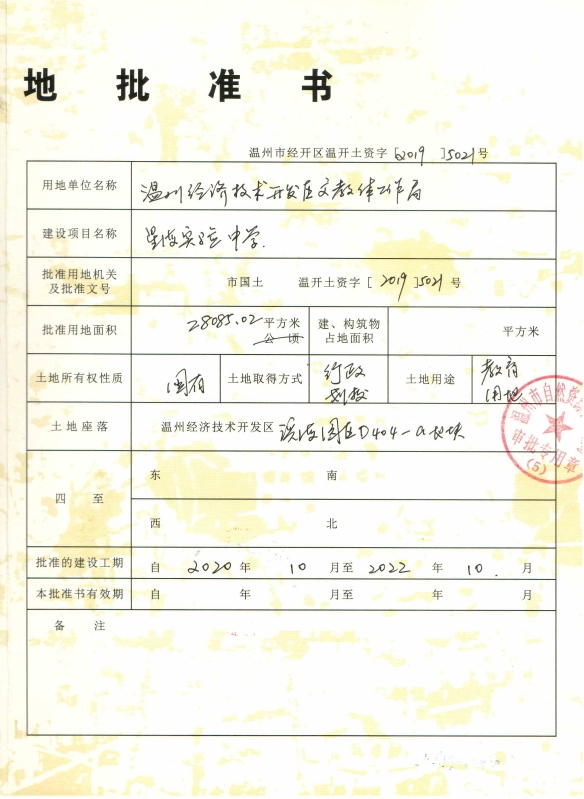 地批准书
温州市经开区温开土资字[2019]5021号
用地单位名称 温州经济技术开发区文教体工作局
建设项目名称 星海实验中学
批准用地机关及批准文号 市国土 温开土资字[2019]5021号
批准用地面积 28085.02 平方米 公顷 建、构筑物占地面积 平方米
土地所有权性质 国有 土地取得方式 行政划拨 土地用途 教育用地
土地座落 温州经济技术开发区滨海园区D404-a地块
四至 东 南
西 北
批准的建设工期 自2020年10月至2022年10月
本批准书有效期 自 年 月至 年 月
备注
温州市自然资
审批专用章
(5)